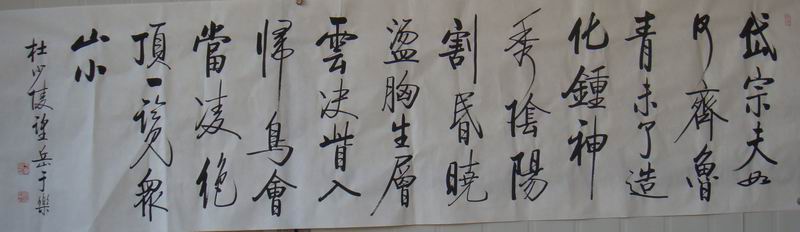 岱宗夫如
何齊魯
青未了造
化鍾神
秀陰陽
割昏曉
盪胸生層
雲決眥入
歸鳥會
當凌絕
頂一覽眾
山小
杜少陵望岳于樂